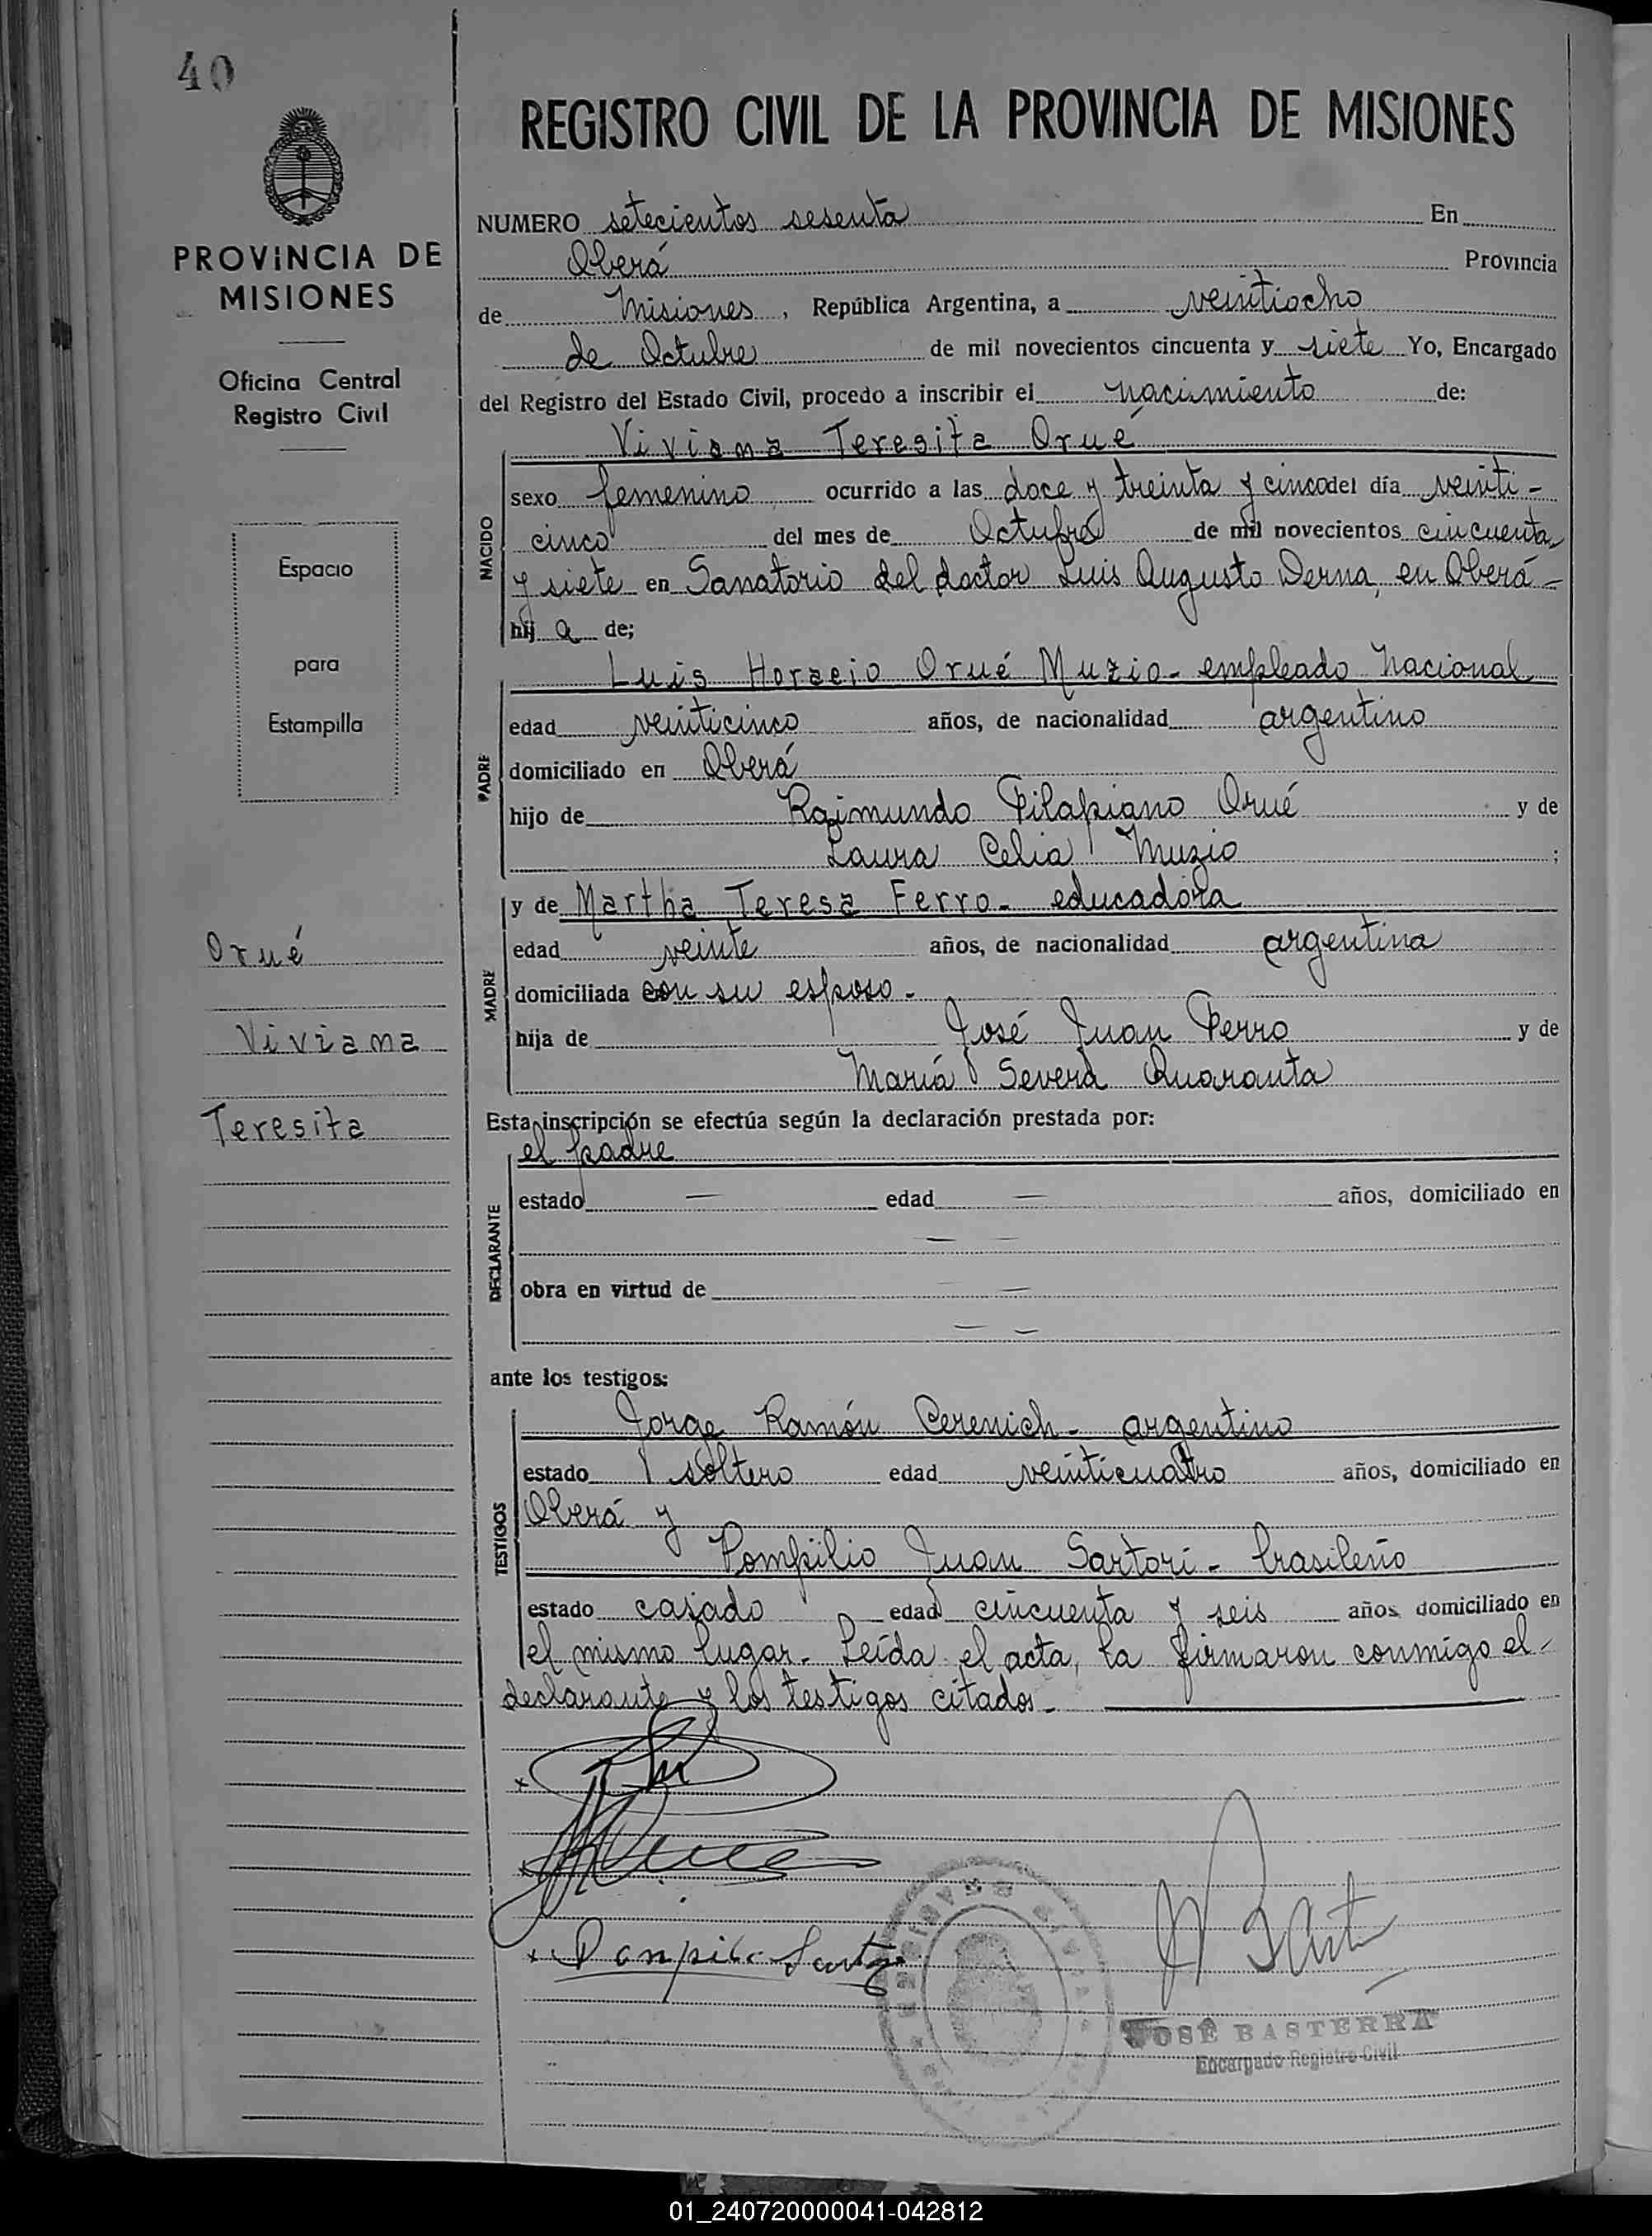 40
PROVINCIA DE
MISIONES
Oficina Central
Registro Civil
Espacio
para
Estampilla
Orué
Viviana
Teresita
REGISTRO CIVIL DE LA PROVINCIA DE MISIONES
NUMERO setecientos sesenta En
Oberá Provincia
de Misiones, República Argentina, a veintiocho
de Octubre de mil novecientos cincuenta y siete Yo, Encargado
del Registro del Estado Civil, procedo a inscribir el nacimiento de:
Viviana Teresita Orué
NACIDO
sexo femenino ocurrido a las doce y treinta y cinco del día veinti-
cinco del mes de Octubre de mil novecientos cincuenta
y siete en Sanatorio del doctor Luis Augusto Derna, en Oberá-
hij a de;
PADRE
Luis Horacio Orué Muzio- empleado Nacional
edad veinticinco años, de nacionalidad argentino
domiciliado en Oberá
hijo de Raimundo Pilapiano Orué y de
Laura Celia Muzio ;
MADRE
y de Martha Teresa Ferro- educadora
edad veinte años, de nacionalidad argentina
domiciliada con su esposo-
hija de José Juan Ferro y de
María Severa Quaranta
Esta inscripción se efectúa según la declaración prestada por:
el padre
DECLARANTE
estado — edad — años, domiciliado en
— —
obra en virtud de —
— —
ante los testigos:
TESTIGOS
Jorge Ramón Cerenich- argentino
estado soltero edad veinticuatro años, domiciliado en
Oberá y
Pompilio Juan Sartori- brasileño
estado casado edad cincuenta y seis años domiciliado en
el mismo lugar- Leída el acta, la firmaron conmigo el-
declarante y los testigos citados-
Pompilio
JOSÉ BASTERRA
Encargado Registro Civil
01_240720000041-042812